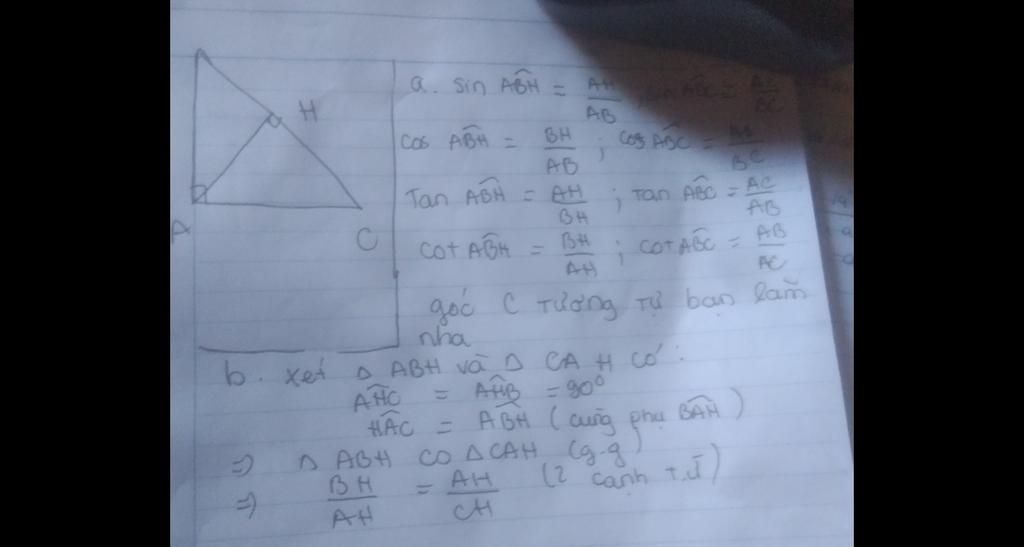 H
A
C
a. sin AB̂H = AH/AB ; sin AB̂C = AC/BC
cos AB̂H = BH/AB ; cos AB̂C = AB/BC
Tan AB̂H = AH/BH ; Tan AB̂C = AC/AB
cot AB̂H = BH/AH ; cot AB̂C = AB/AC
góc C tương tự bạn làm
nha
b. xét △ ABH và △ CAH có:
AĤC = AĤB = 90°
HÂC = AB̂H (cùng phụ BÂH)
=> △ ABH ∽ △ CAH (g.g)
=> BH/AH = AH/CH (2 cạnh t.ư)